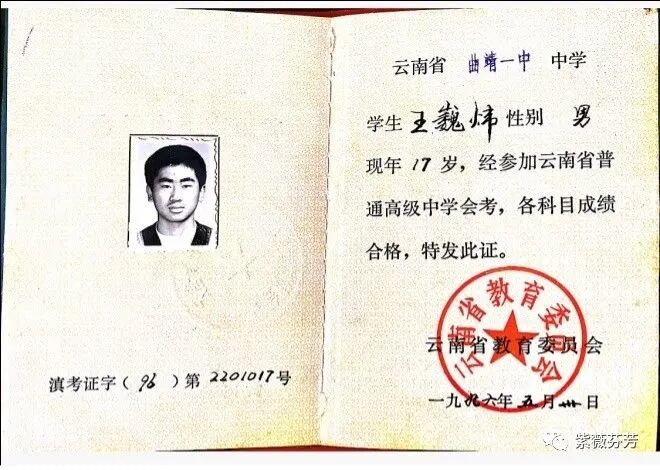 滇考证字(96)第2201017号
云南省 曲靖一中 中学
学生 王巍炜 性别 男
现年 17 岁，经参加云南省普
通高级中学会考，各科目成绩
合格，特发此证。
云南省教育委员会
云南省教育委员会
一九九六年五月卅日
紫薇芬芳